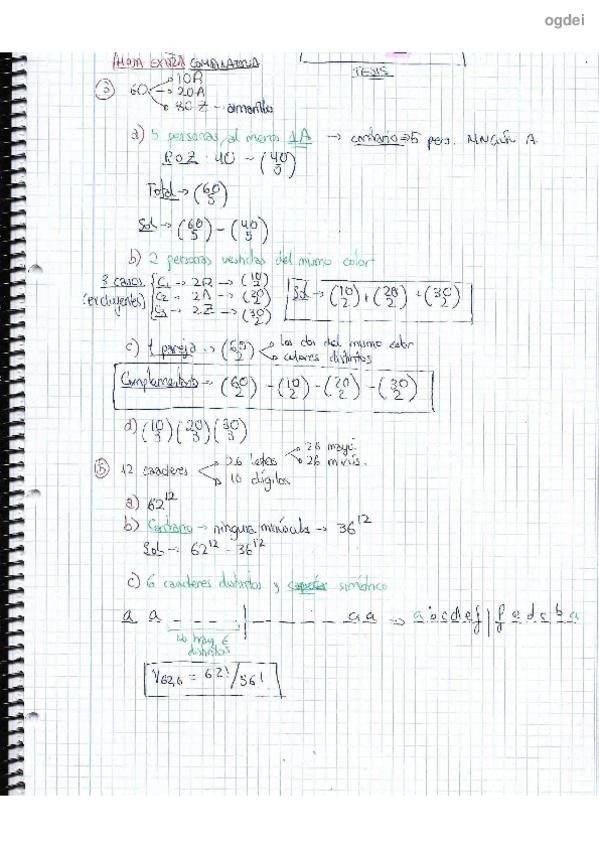 ogdei
HOJA EXTRA COMBINATORIA
TEMIS
a) 60 → 10R
→ 20A
80 Z - amarillo
a) 5 personas, al menos 1A → contrario → 5 pers. NINGÚN A
R o Z : 40 → (40 5)
Total → (60 5)
Sol → (60 5) - (40 5)
b) 2 personas vestidas del mismo color
3 casos (excluyentes) { C1 → 2R → (10 2)
C2 → 2A → (20 2)
C3 → 2Z → (30 2)
Sol → (10 2) + (20 2) + (30 2)
c) 1 pareja → (60 2) los dos del mismo color
colores distintos
Complementario → (60 2) - (10 2) - (20 2) - (30 2)
d) (10 3) (20 3) (30 3)
b) 12 caracteres 26 letras 26 mayú.
26 minús.
10 dígitos
a) 62^12
b) Contrario → ninguna minúscula → 36^12
Sol → 62^12 - 36^12
c) 6 caracteres distintos y simétrico
a a _ _ _ _ | _ _ _ _ a a → a b c d e f | f e d c b a
hay 6
distintos
V62,6 = 62!/56!